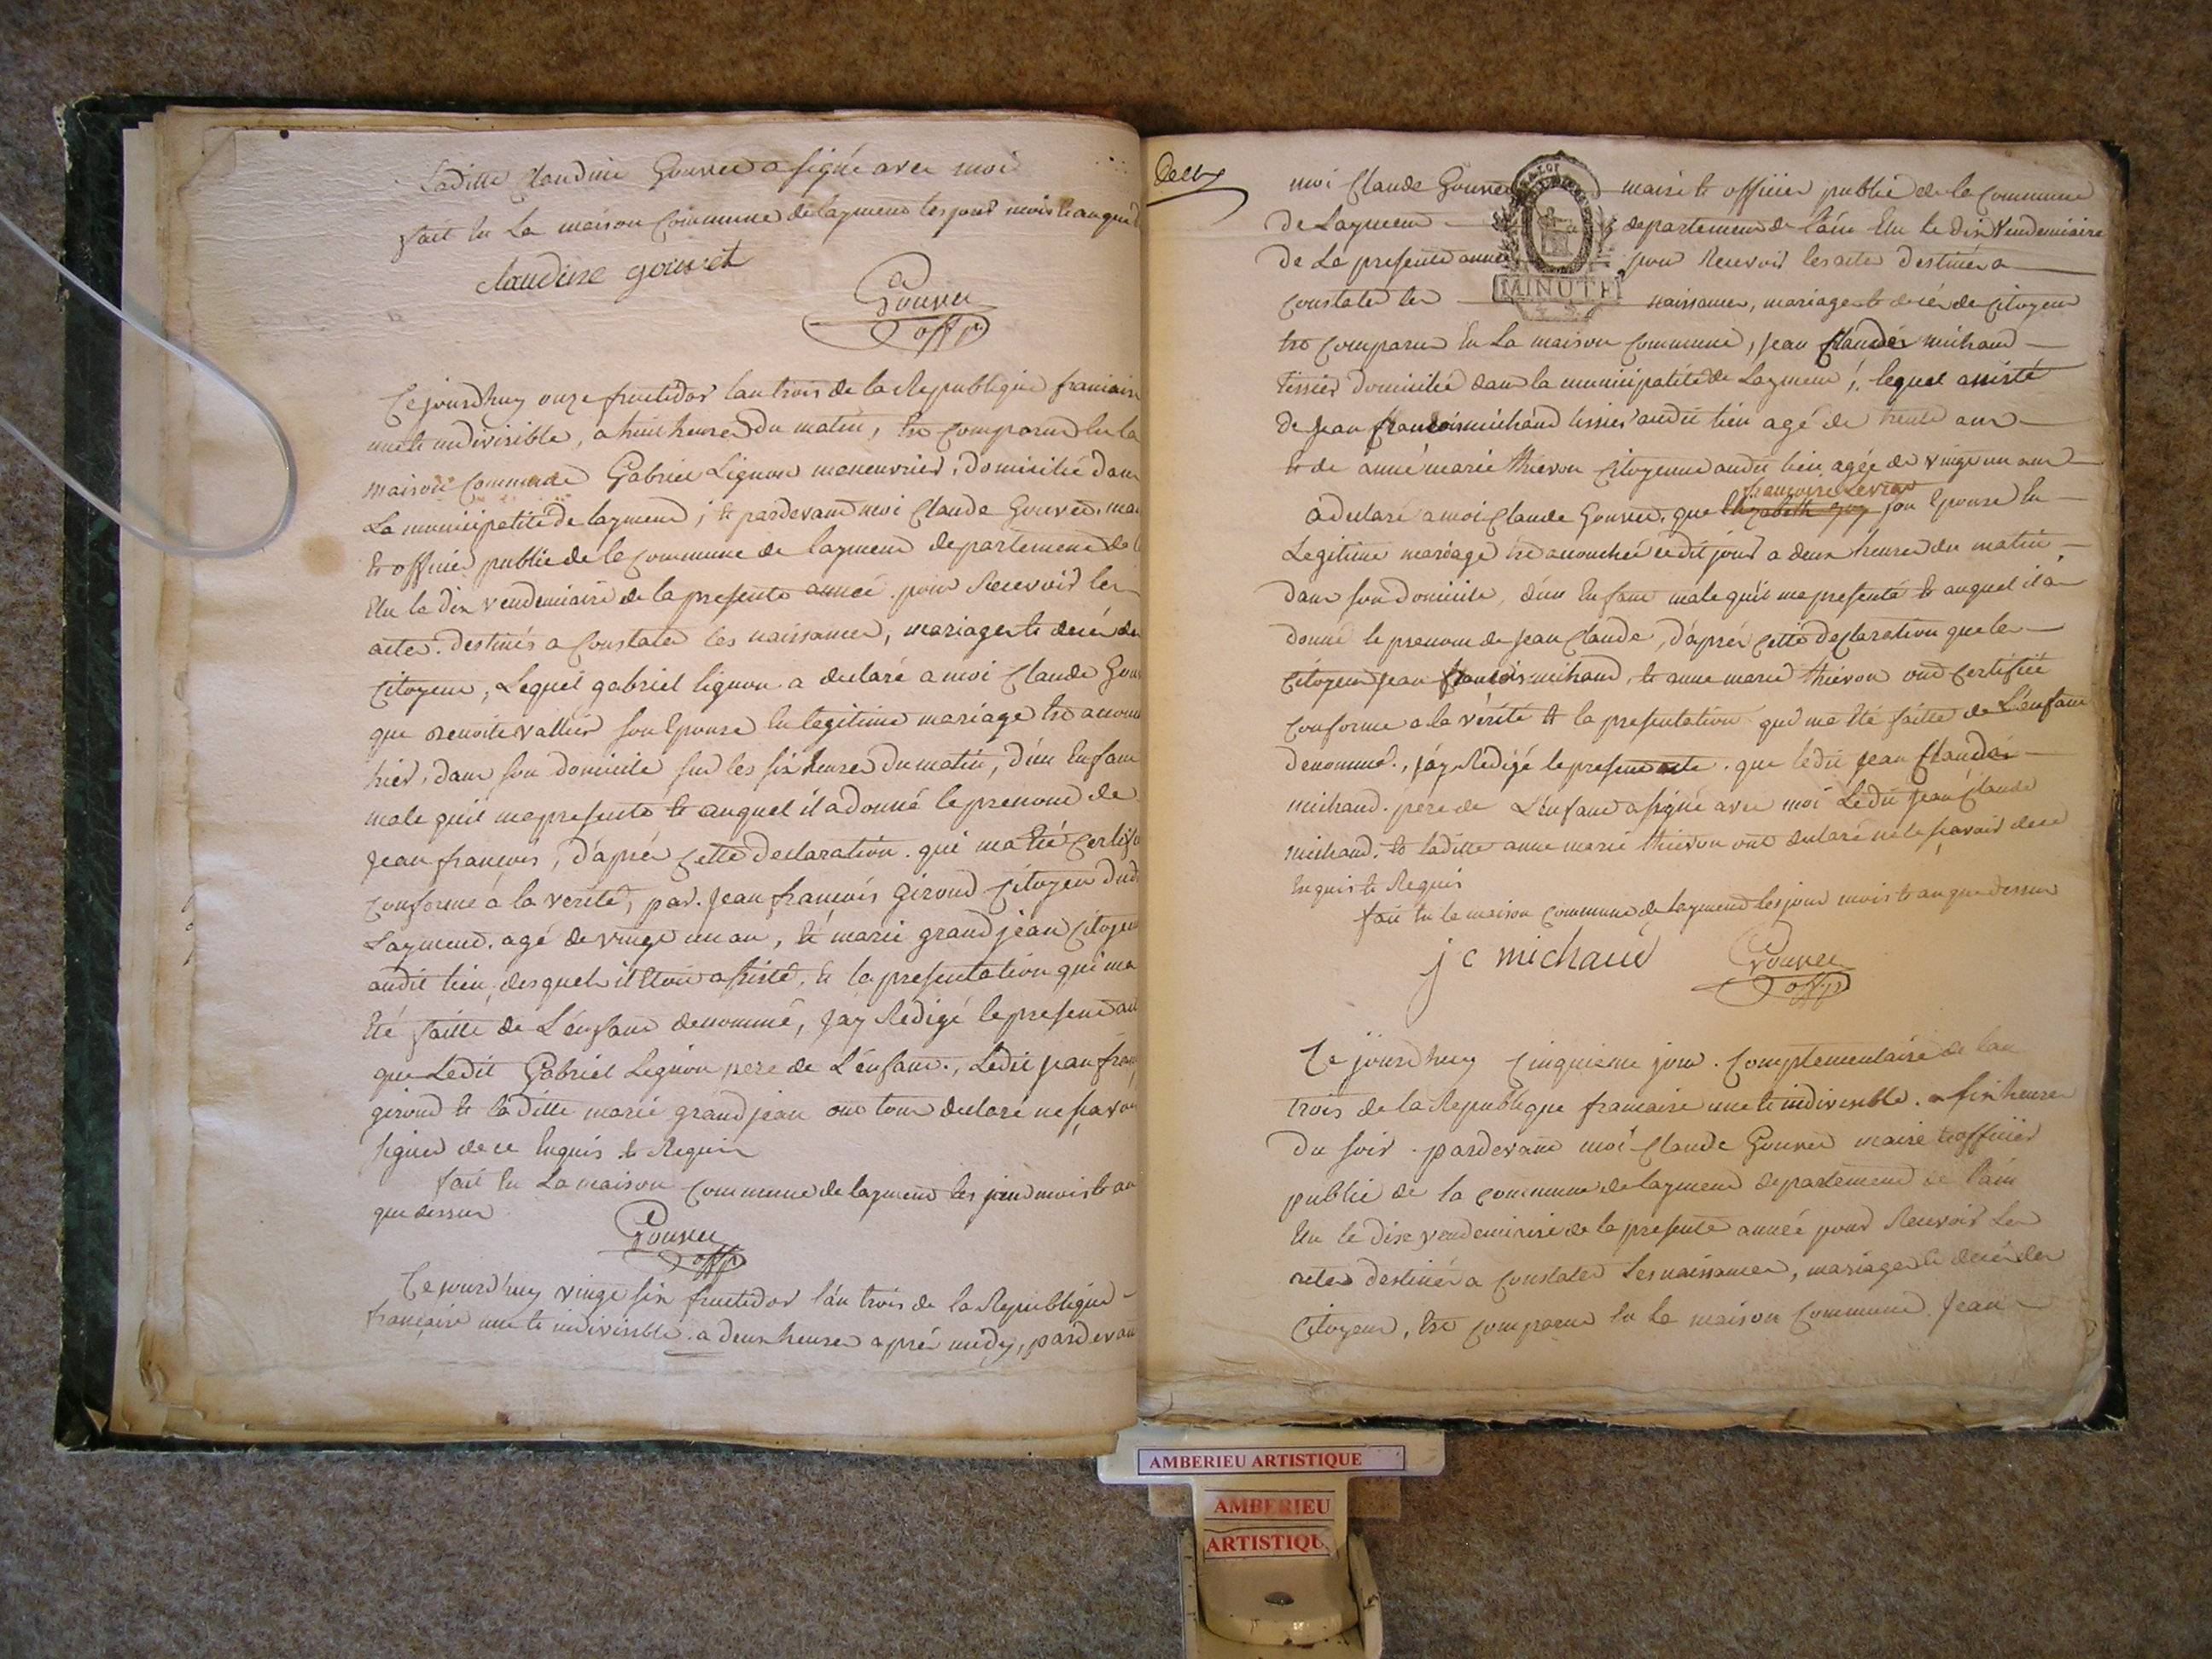 Laditte Claudine Gouvet a signé avec moi
fait En La maison Commune de laymend les jour mois et an que d
claudine gouvet
Gouvet
offp
Ce jourdhuy onze fructidor lan trois de la Republique francaise
une et indivisible, a huit heures du matin, Est Comparud En la
maison Commune Gabriel Lignon maneuvrier, domicilié dans
La municipalité de laymend; et pardevand moi Claude Gouvet, mai
Et officier public de la Commune de laymend departemend de l
Elu le dix vendemiaire de la presente année pour Recevoir les
actes destinés a Constater les naissances, mariages et decés des
Citoyens, Lequel gabriel lignon a declaré a moi Claude Gouv
que Benoite vallier son Epouse En legitime mariage Est accouc
hier, dans son domicile sur les six heures du matin, d'un Enfant
male quil ma presenté et auquel il a donné le prenom de
Jean françois, d'aprés Cette declaration qui ma Eté Certifi
Conforme á la verité, par Jean francois Giroud Citoyen dud
Laymend, agé de vingt un an, Et marie grandjean Citoyen
audit lieu, desquels il Etoit assisté, Et la presentation qui ma
Eté faitte de L'énfant denommé, J'ay Redigé le presend act
que Ledit Gabriel Lignon pere de L'énfant, Ledit jean fran
giroud Et laditte marie grandjean ont tous declaré ne savoir
signer de ce Enquis et Requis
fait En La maison Commune de laymend les jour mois et an
que dessus
Gouvet
offp
Ce jourdhuy vingt six fructidor l'an trois de la Republique
française une et indivisible a deux heures aprés midy, pardevan
moi Claude Gouvet maire et officier public de la Commune
de Laymend departemend de láin Elu le dix Vendemiaire
de La presente année pour Recevoir les actes destinés a
Constater les naissances, mariages et decés de Citoyens
Est Comparud En La maison Commune, Jean Claude michaud
tissier domicilié dans la municipalité de Laymend, lequel assisté
de Jean francois michaud tissier audit lieu agé de trente ans
Et de anne marie thievon Citoyenne audit lieu agée de vingt un ans
francoise Levrat
a declaré a moi Claude Gouvet, que Elizabeth son Epouse En
Legitime mariage Est accouchée cedit jour a deux heures du matin,
dans son domicile, d'un Enfant male qu'il ma presenté et auquel il a
donné le prenom de Jean Claude, d'aprés Cette declaration que les
Citoyens Jean francois michaud, et anne marie thievon ont Certifiée
Conforme a la vérité Et la presentation qui ma Eté faitte de L'énfant
denommé, j'áy Redigé le presend acte que ledit Jean Claude
michaud pere de L'énfant a signé avec moi Ledit Jean Claude
michaud, Et laditte anne marie thievon ont declaré ne le savoir de ce
Enquis et Requis
fait En la maison Commune de laymend les jour mois et an que dessus
j c michaud
Gouvet
offp
Ce jourdhuy Cinquieme jour Complementaire de lan
trois de la Republique francaise une et indivisible a six heures
du soir pardevant moi Claude Gouvet maire et officier
public de la Commune de laymend departemend de l'ain
Elu le dix vendemiaire de la presente année pour Recevoir Les
actes destinés a Constater Les naissances, mariages et decés des
Citoyens, Est Comparu En la maison Commune Jean
LA LOI
MINUTE
AMBERIEU ARTISTIQUE
AMBERIEU
ARTISTIQU